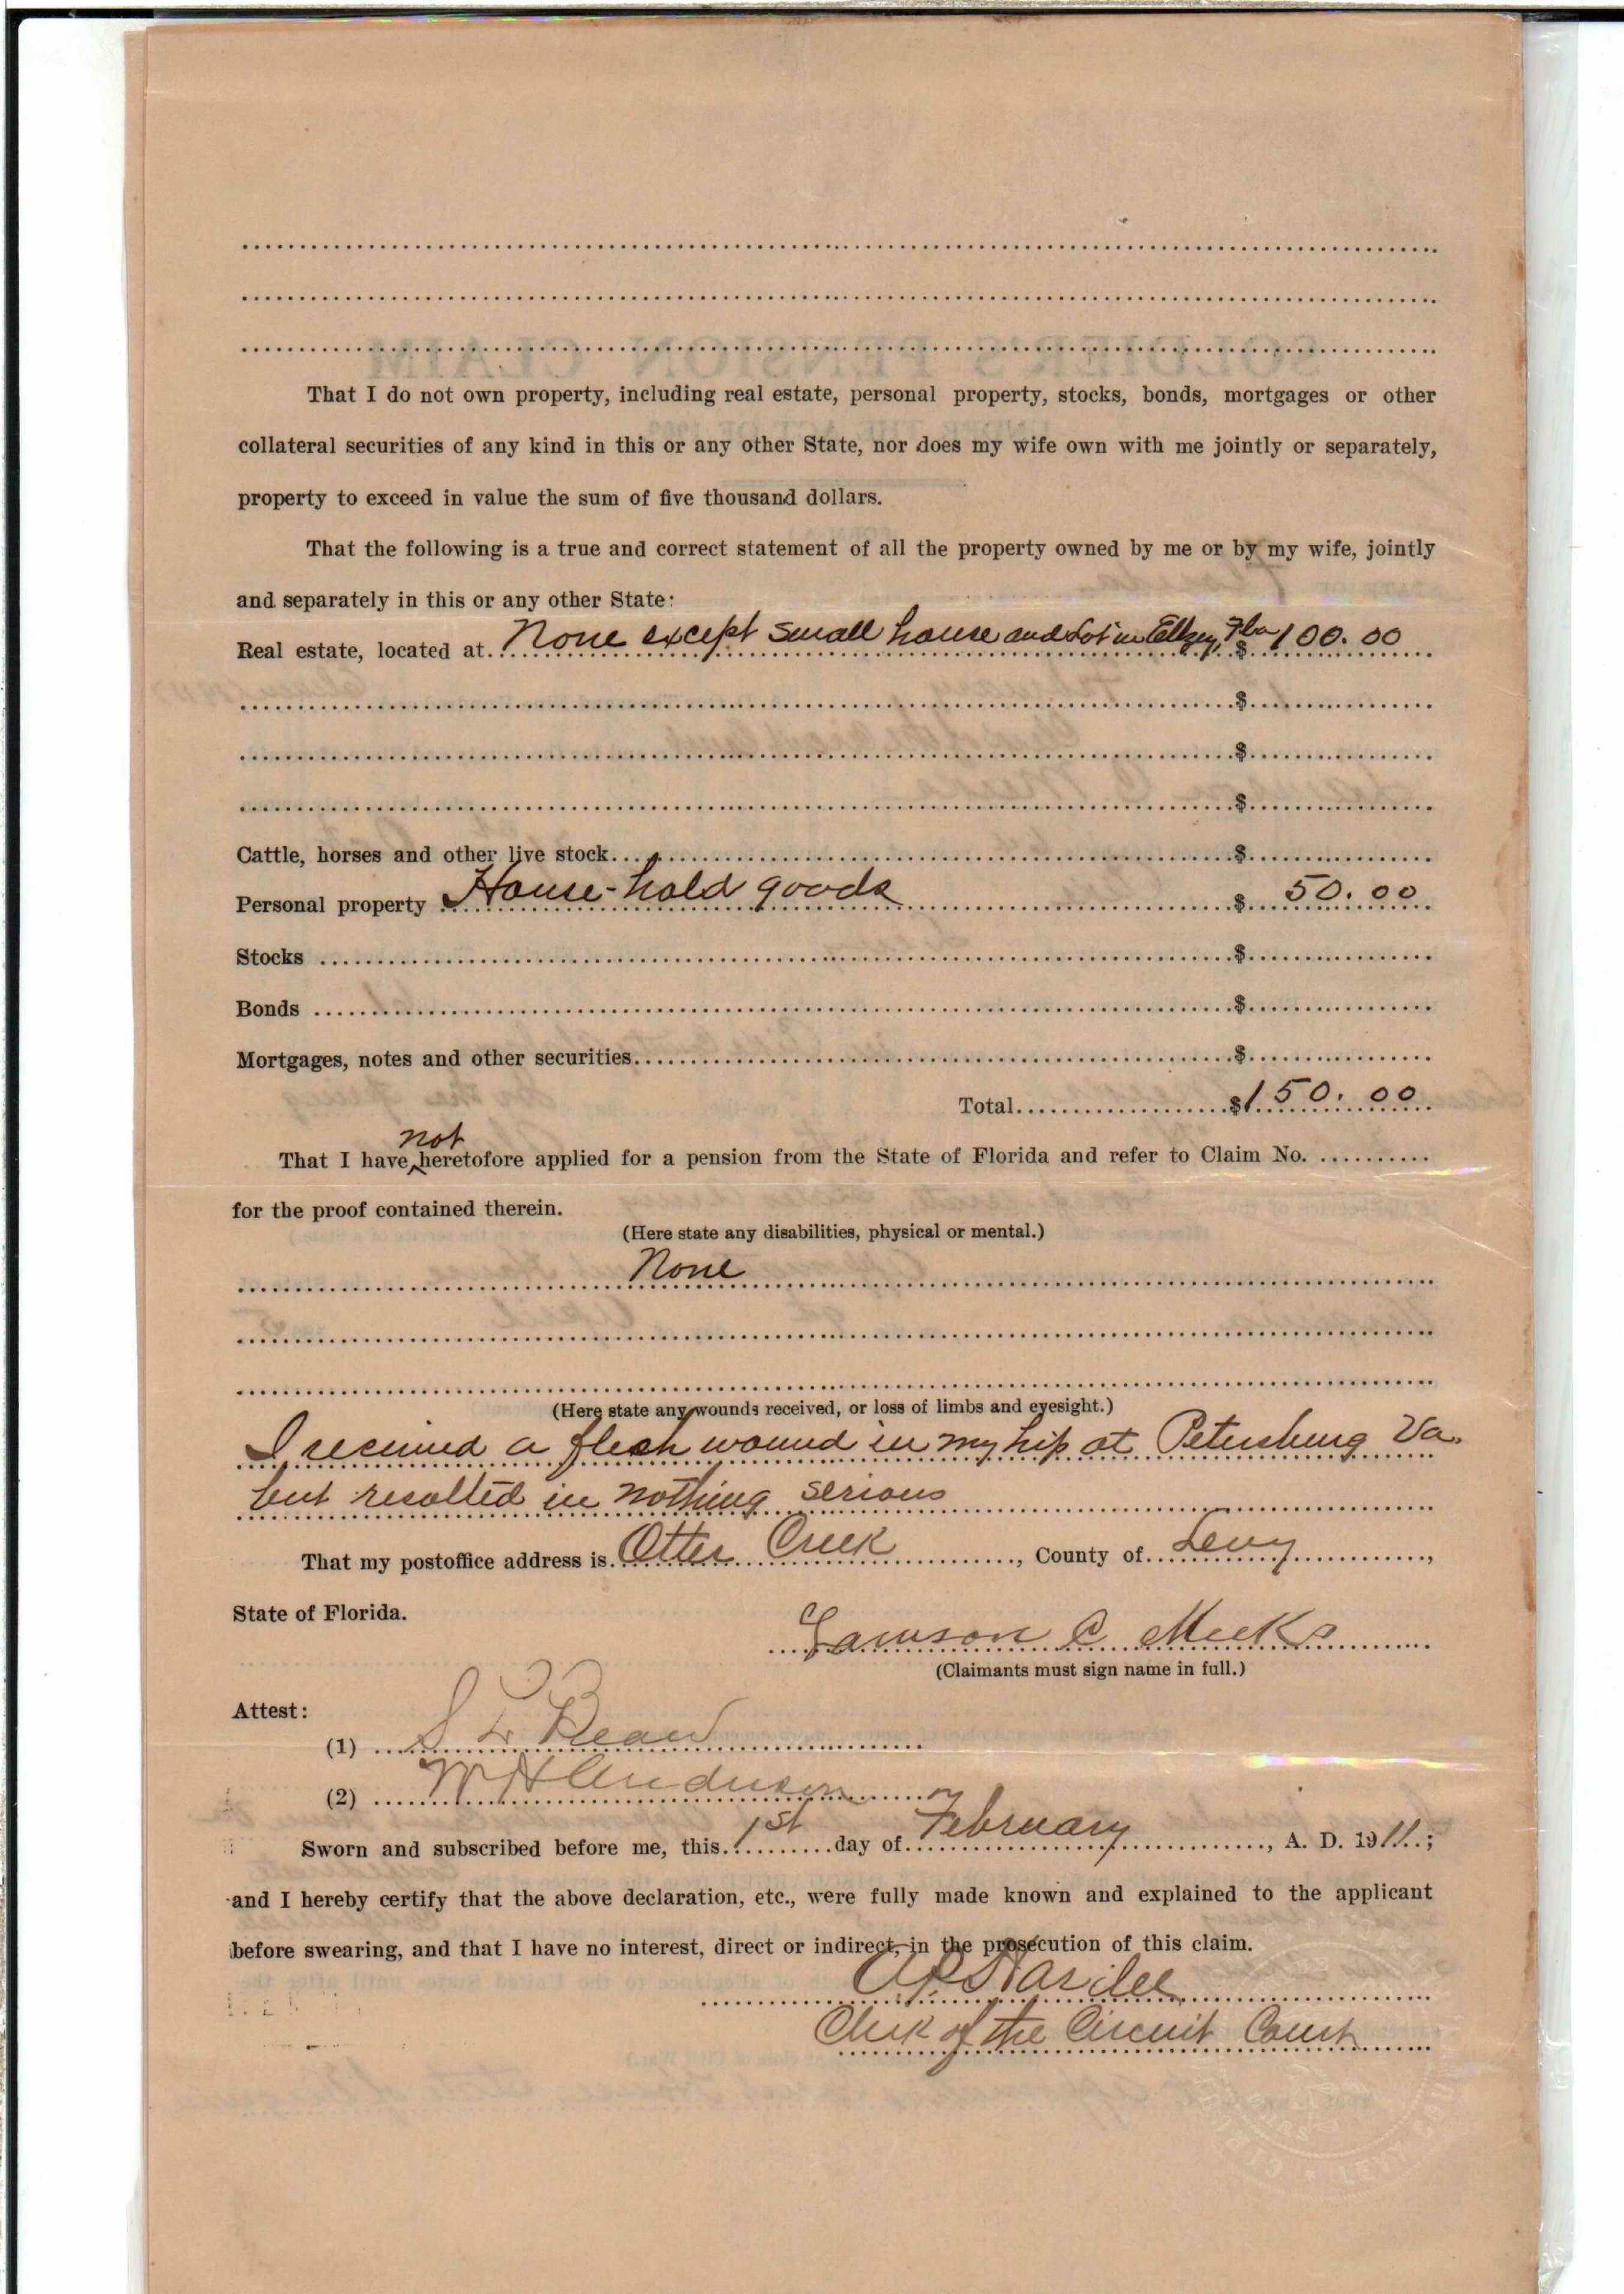 That I do not own property, including real estate, personal property, stocks, bonds, mortgages or other
collateral securities of any kind in this or any other State, nor does my wife own with me jointly or separately,
property to exceed in value the sum of five thousand dollars.
That the following is a true and correct statement of all the property owned by me or by my wife, jointly
and separately in this or any other State:
Real estate, located at None except small house and Lot in Ellzey, Fla $100.00
$
$
$
Cattle, horses and other live stock $
Personal property House-hold goods $ 50.00
Stocks $
Bonds $
Mortgages, notes and other securities $
Total $150.00
not
That I have heretofore applied for a pension from the State of Florida and refer to Claim No.
for the proof contained therein.
(Here state any disabilities, physical or mental.)
None
(Here state any wounds received, or loss of limbs and eyesight.)
I received a flesh wound in my hip at Petersburg Va.
but resulted in nothing serious
That my postoffice address is Otter Creek, County of Levy,
State of Florida.
Lawson C Meeks
(Claimants must sign name in full.)
Attest:
(1) S L Bean
(2) W H Anderson
Sworn and subscribed before me, this 1st day of February, A. D. 1911;
and I hereby certify that the above declaration, etc., were fully made known and explained to the applicant
before swearing, and that I have no interest, direct or indirect, in the prosecution of this claim.
Clerk of the Circuit Court